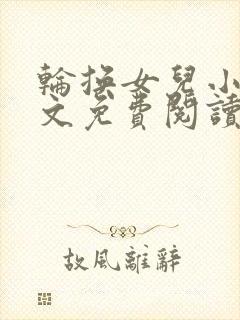 輪換女兒小
文免費閱讀
故風離辭